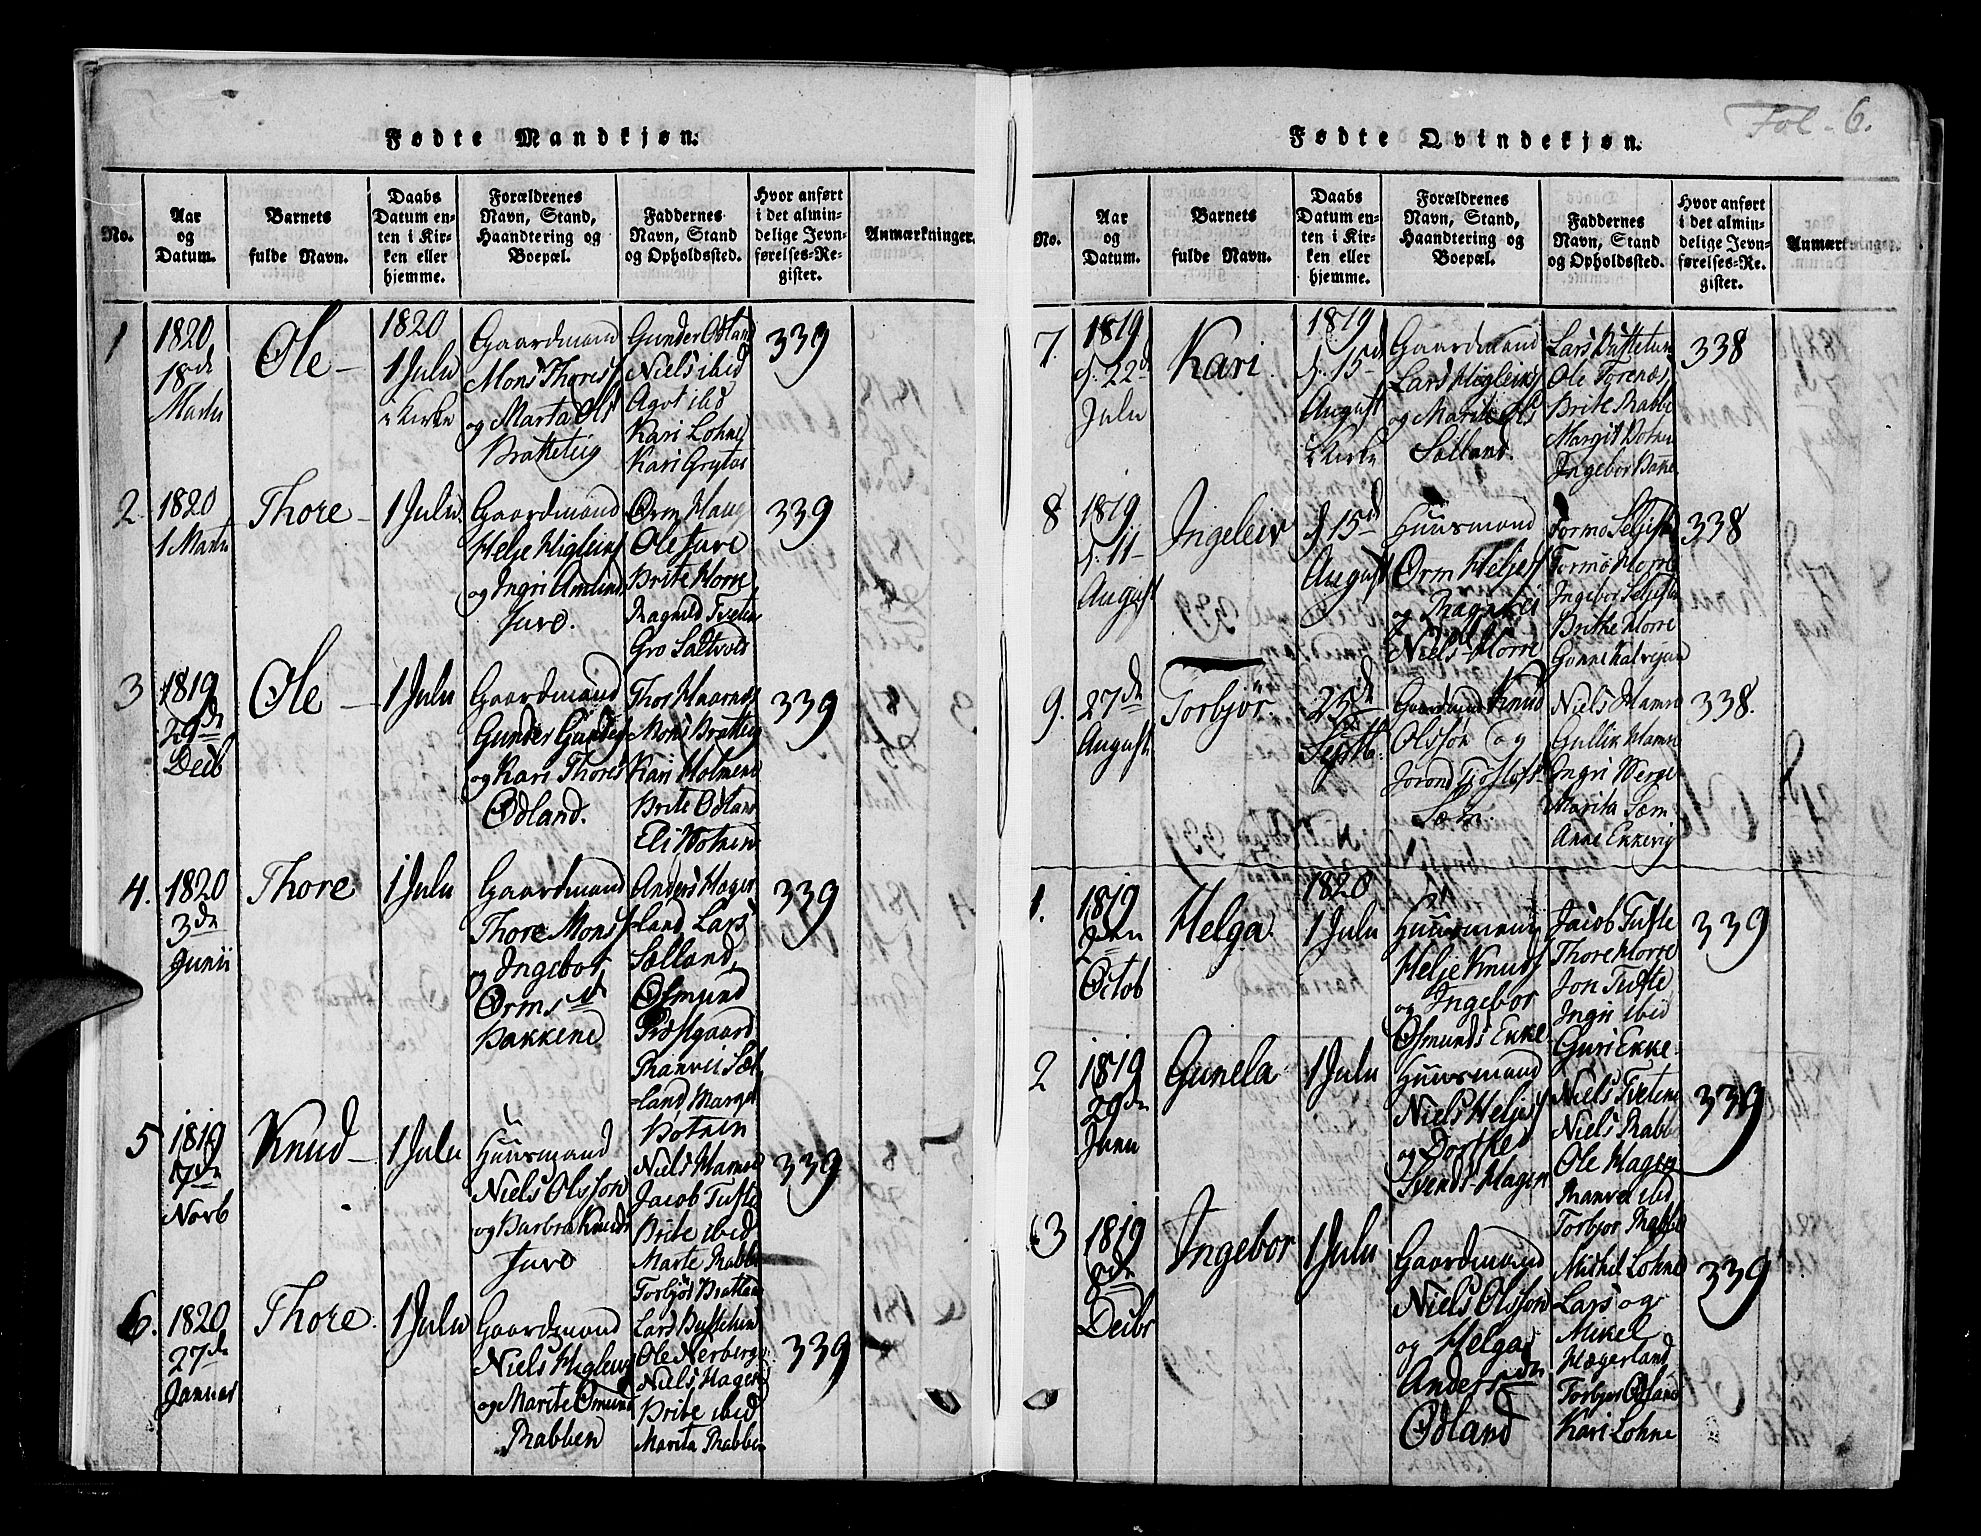 Fol. 6.
Fødte Mandkjøn.
No.
Aar
og
Datum.
Barnets
fulde Navn.
Daabs
Datum en-
ten i Kir-
ken eller
hjemme.
Forældrenes
Navn, Stand,
Haandtering og
Boepæl.
Faddernes
Navn, Stand
og Opholdssted.
Hvor anført
i det almin-
delige Jevn-
førelses-Re-
gister.
Anmærkninger.
1
1820
18de
Martii
Ole
1820
1 Julii
i Kirke
Gaardmand
Mons Thores
og Marta Ols
Bratteteig
Gunder Ødland
Niels ibid
Agot ibd
Kari Lohne
Kari Grytas
339
2
1820
1 Marti
Thore
1 Julii
Gaardmand
Helje Higleiks
og Ingri Amund
Juve.
Orm Haug
Ole Juve
Brite Morre
Ragnild Tveten
Gro Saltvold
339
3
1819
29de
Decb
Ole
1 Julii
Gaardmand
Gunder Gunders
og Kari Thores
Ødland.
Thor Maarnes
Mons Bratteig
Kari Holmene
Brite Ødland
Eli Botnen
339
4.
1820
3de
Junii
Thore
1 Julii
Gaardmand
Thore Mons
og Ingebor
Orms d
Bakkene
Anders Hager
land Lars
Sælland
Osmund
Præstgaard
Ranvei Sæl
land Marget
Botnen
339
5
1819
17de
Novb
Knud
1 Julii
Huusmand
Niels Olsson
og Barbra Knuds
Juve
Niels Mamre
Jacob Tufte
Brite ibid
Marte Rabbe
Torbjør Bratland
339
6.
1820
27de
Januar
Thore.
1 Julii
Gaardmand
Niels Higleiks
og Marite Osmund
Rabben
Lars Buttetun
Ole Nerberg
Niels Hagen
Brite ibid
Marita Rabben
339
Fødte Qvindekjøn.
No.
Aar
og
Datum.
Barnets
fulde Navn.
Daabs
Datum en-
ten i Kir-
ken eller
hjemme.
Forældrenes
Navn, Stand,
Haandtering og
Boepæl.
Faddernes
Navn, Stand
og Opholdssted.
Hvor anført
i det almin-
delige Jevn-
førelses-Re-
gister.
Anmærkninger.
7.
1819
d. 22de
Julii
Kari
1819
d. 15de
August
i Kirke
Gaardmand
Lars Higleiks
og Marite Ols
Sælland.
Lars Buttetun
Ole Torenæs
Brite Rabbe
Margit Botnen
Ingebor Bakke
338
8
1819
d. 11
August
Ingeleiv
d 15de
August
Huusmand
Orm Heljes
og Ragnild
Niels Morre
Tormo Seljestad
Tormo Morre
Ingebor Seljestad
Britte Morre
Gonne Kalvejan
338
9.
27de
August
Torbjør.
25de
Septb.
Gaardmand Knud
Olsson og
Jorond
Sæm.
Niels Mamre
Gullik Mamre
Ingri Werge
Marita Sæm
Anne Ekkevig
338.
1.
1819
Octob
Helga
1820
1 Julii
Huusmand
Helje Knuds
og Ingebor
Osmunds Ekke
Jacob Tufte
Thore Morre
Jon Tufte
Ingri ibid
Guri Ekke
339
2
1819
29de
Junii
Gunela
1 Julii
Huusmand
Niels Heljes
og Dorthe
Svends Hagen
Niels Tvetene
Niels Rabbe
Ole Hagen
Ranvei ibid
Torbjør Rabbe
339
3
1819
8de
Decbr
Ingebor
1 Julii
Gaardmand
Niels Olsson
og Helga
Anders
Ødland
Mikkel Lohne
Lars og
Mikel
Hægerland
Torbjør Ødland
Kari Lohne
339